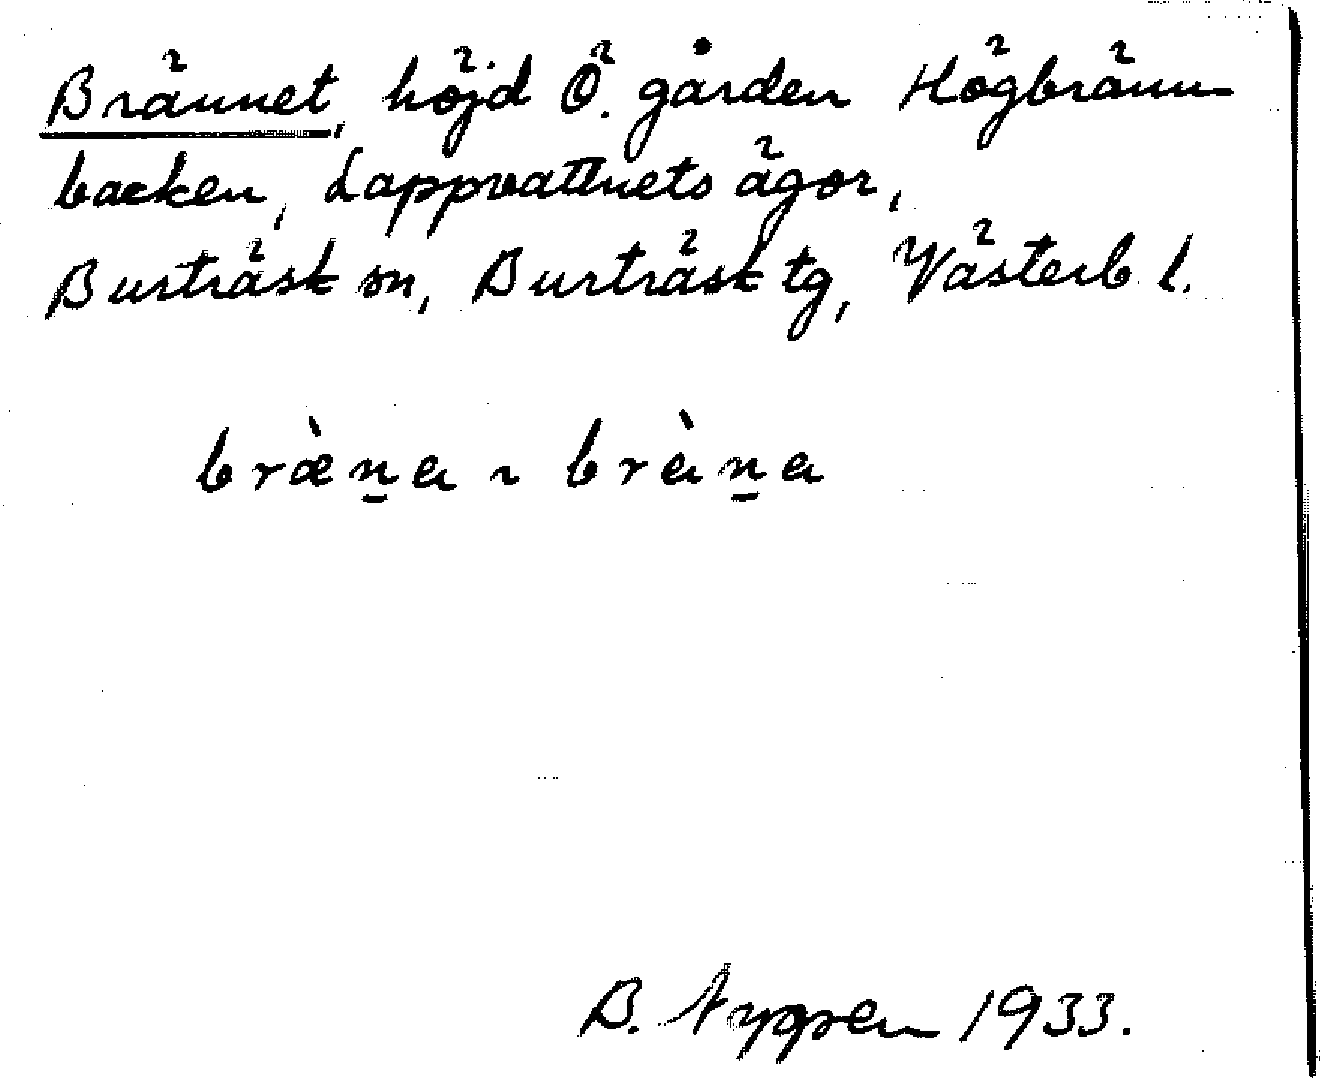 Brännet, höjd Ö. gården Högbränn
backen, Lappvattnets ägor,
Burträsk sn, Burträsk tg, Västerb l.
bræ̀n̠a ~ bràn̠a
B. Nygren 1933.